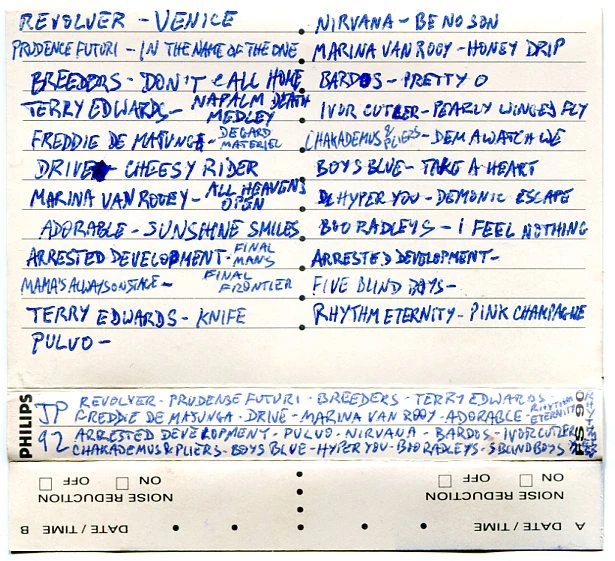 REVOLVER - VENICE
PRUDENCE FUTURI - IN THE NAME OF THE ONE
BREEDERS - DON'T CALL HOME
TERRY EDWARDS - NAPALM DEATH MEDLEY
FREDDIE DE MAJUNGA - DEGARD MATERIEL
DRIVE - CHEESY RIDER
MARINA VAN ROOEY - ALL HEAVENS OPEN
ADORABLE - SUNSHINE SMILES
ARRESTED DEVELOPMENT - FINAL MANS
MAMA'S ALWAYS ON STAGE - FINAL FRONTIER
TERRY EDWARDS - KNIFE
PULVO -
NIRVANA - BE NO SON
MARINA VAN ROOY - HONEY DRIP
BARDOS - PRETTY O
IVOR CUTLER - PEARLY WINGED FLY
CHAKADEMUS & PLIERS - DEM A WATCH WE
BOYS BLUE - TAKE A HEART
DJ HYPER YOU - DEMONIC ESCAPE
BOO RADLEYS - I FEEL NOTHING
ARRESTED DEVELOPMENT -
FIVE BLIND BOYS -
RHYTHM ETERNITY - PINK CHAMPAGNE
PHILIPS
JP
92
REVOLVER - PRUDENSE FUTURI - BREEDERS - TERRY EDWARDS
FREDDIE DE MAJUNGA - DRIVE - MARINA VAN ROOY - ADORABLE - RHYTHM ETERNITY
ARRESTED DEVELOPMENT - PULVO - NIRVANA - BARDOS - IVOR CUTLER
CHAKADEMUS & PLIERS - BOYS BLUE - HYPER YOU - BOO RADLEYS - 5 BLIND BOYS
FS 90
A DATE / TIME
NOISE REDUCTION
ON OFF
B DATE / TIME
NOISE REDUCTION
ON OFF